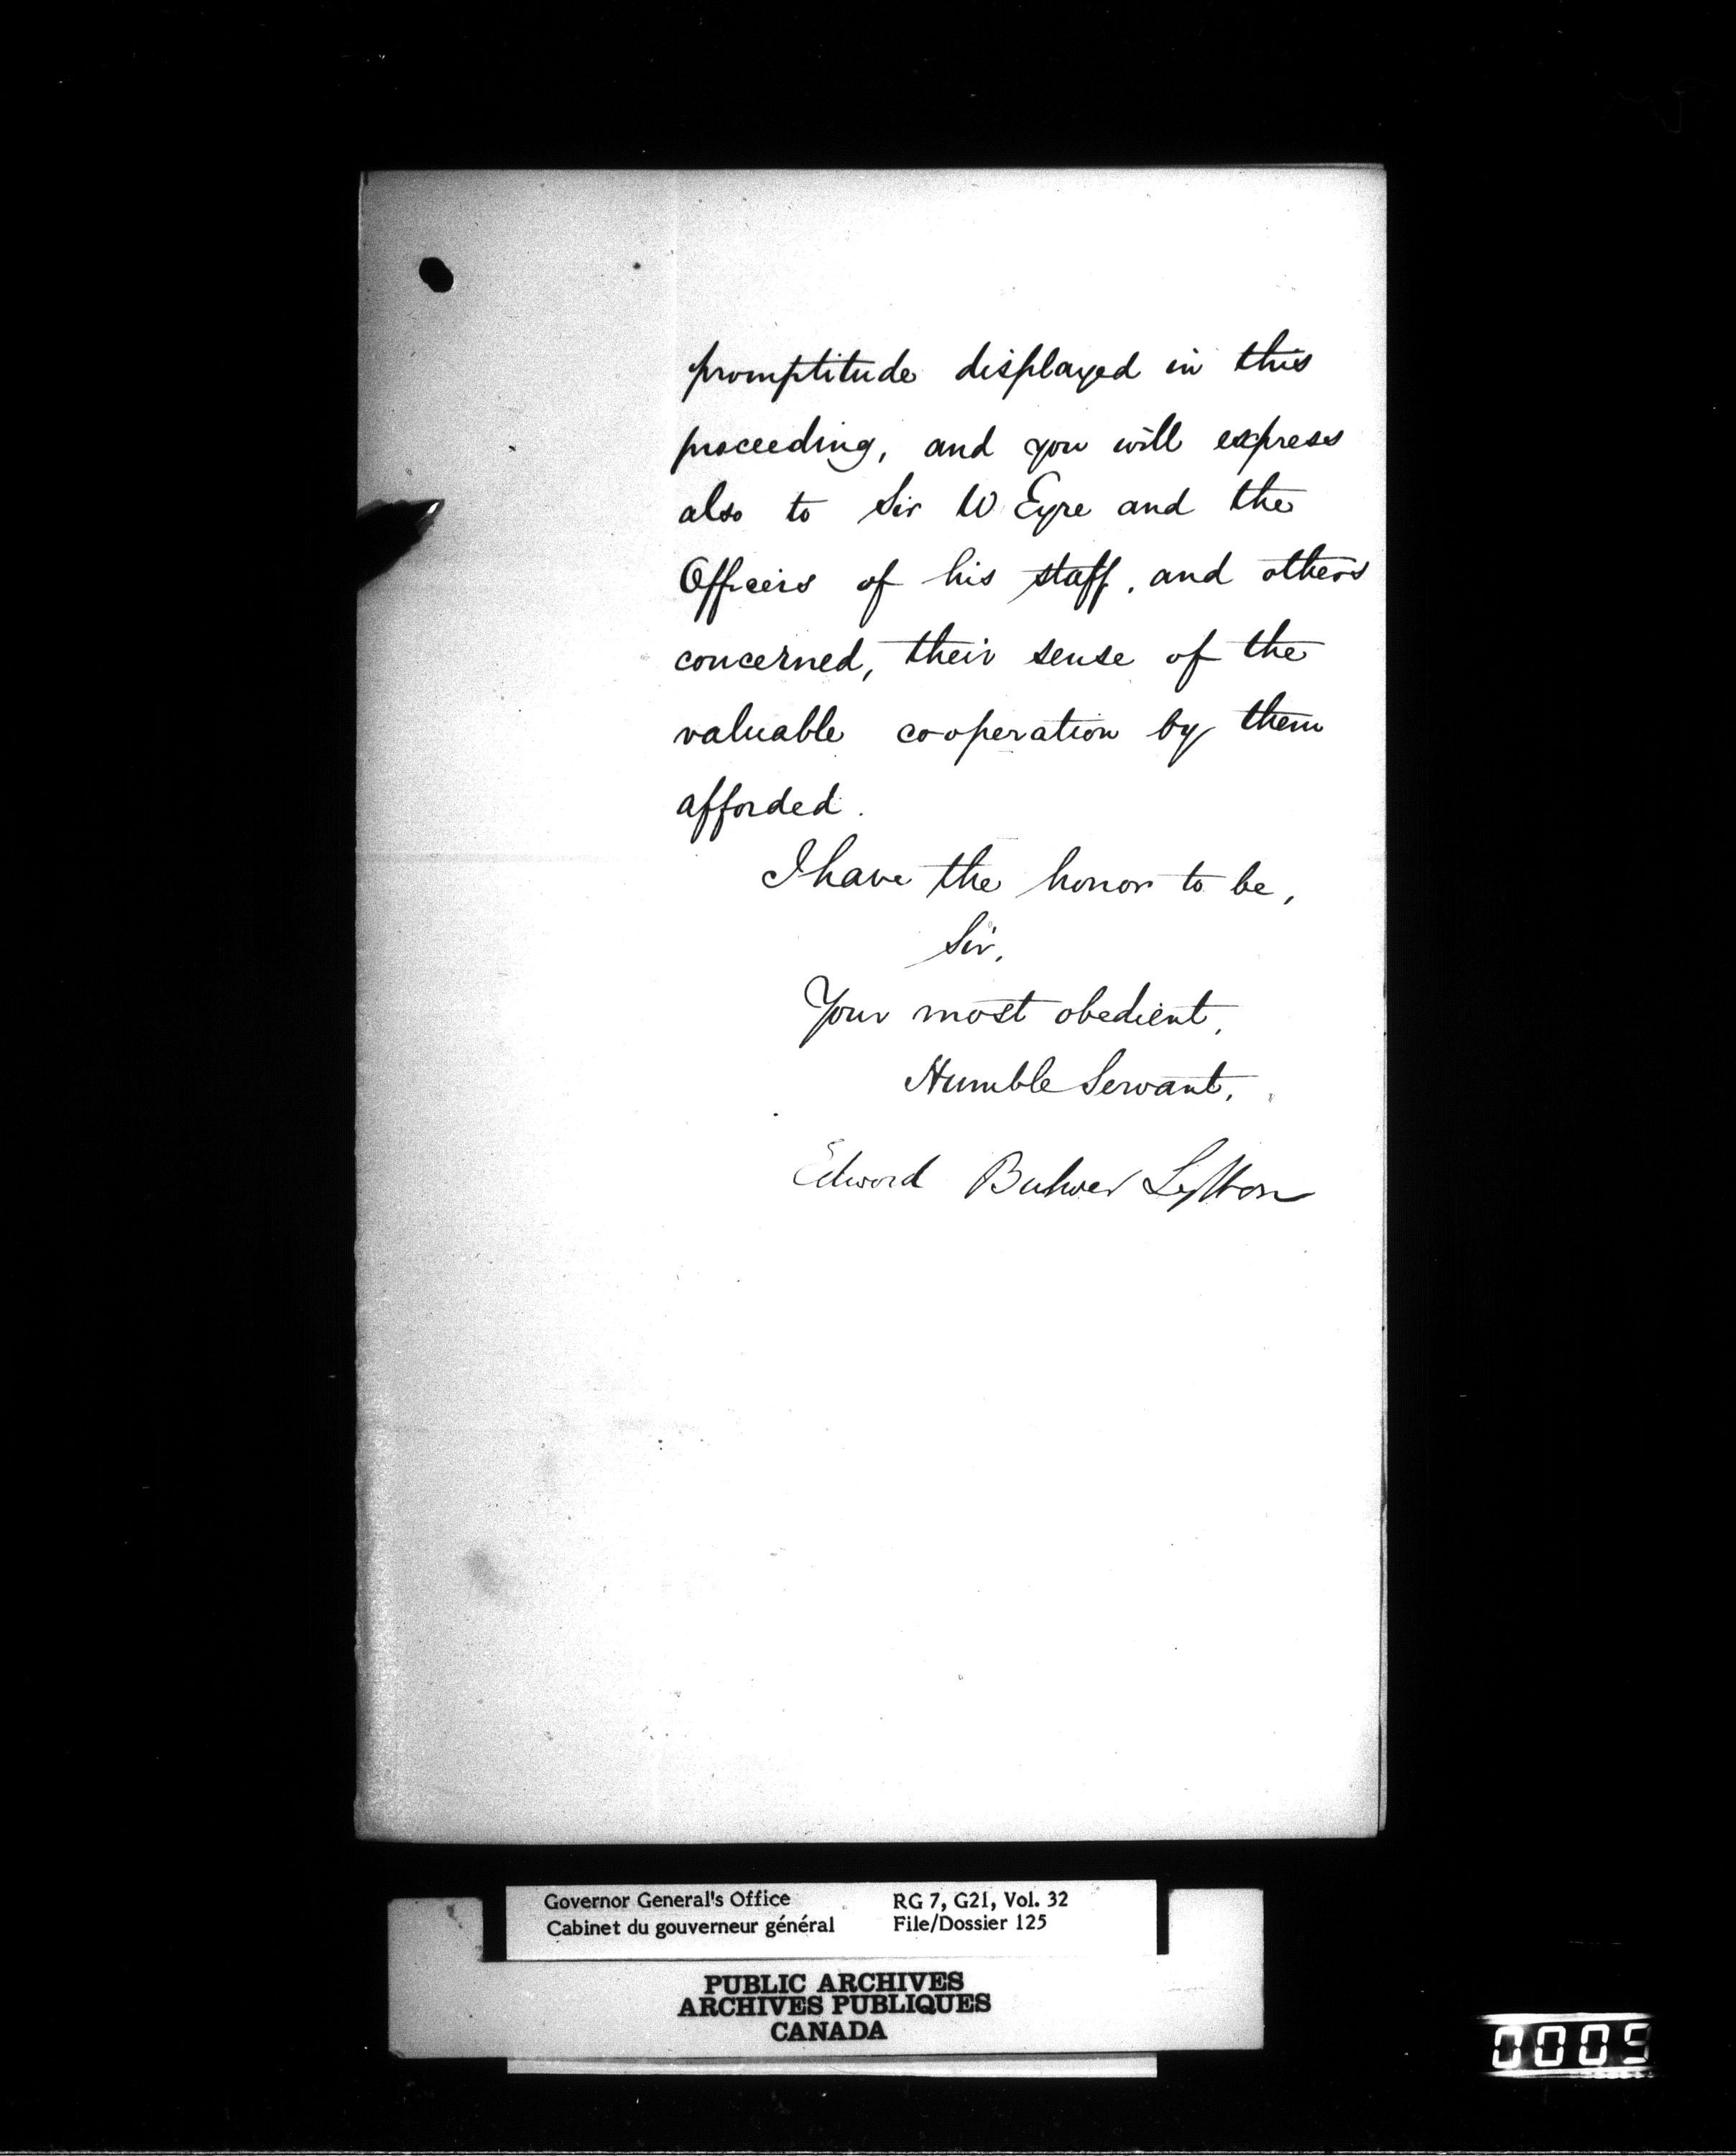 promptitude displayed in this
proceeding, and you will express
also to Sir W Eyre and the
Officers of his staff, and others
concerned, their sense of the
valuable cooperation by them
afforded.
I have the honor to be,
Sir,
Your most obedient,
Humble Servant,
Edward Bulwer Lytton
Governor General's Office RG 7, G21, Vol. 32
Cabinet du gouverneur général File/Dossier 125
PUBLIC ARCHIVES
ARCHIVES PUBLIQUES
CANADA
0005